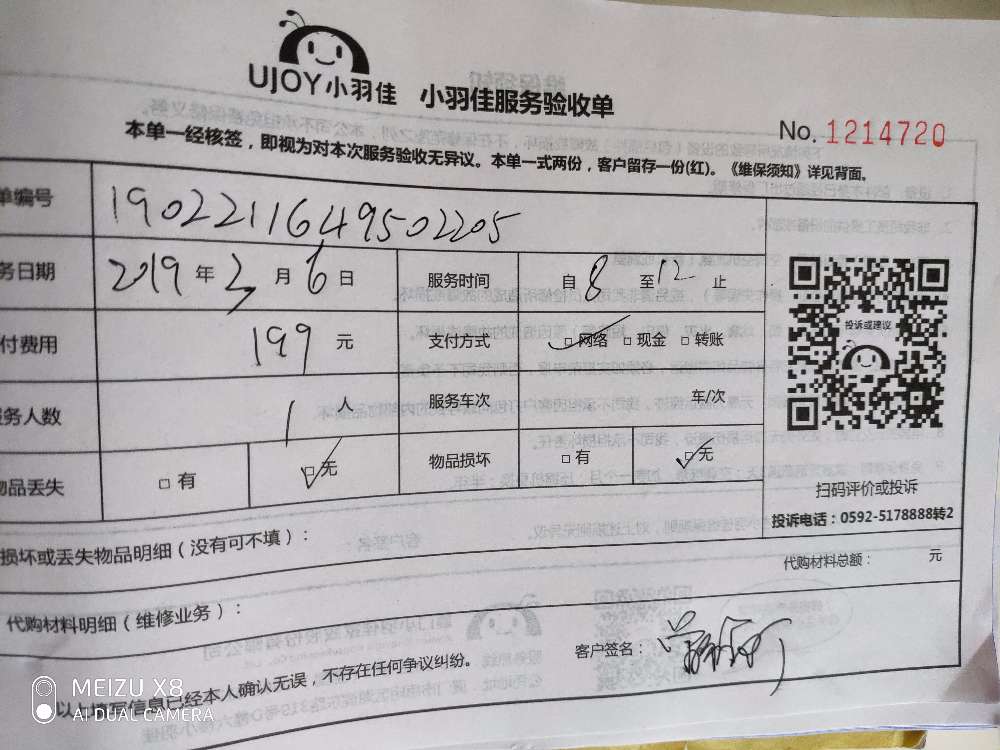 UJOY小羽佳 小羽佳服务验收单
No. 1214720
本单一经核签，即视为对本次服务验收无异议。本单一式两份，客户留存一份(红)。《维保须知》详见背面。
单编号 1902211649502205
务日期 2019 年 3 月 6 日 服务时间 自 8 至 12 止
付费用 199 元 支付方式 □网络 □现金 □转账
服务人数 1 人 服务车次 车/次
物品丢失 □有 □无 物品损坏 □有 □无
投诉或建议
扫码评价或投诉
投诉电话：0592-5178888转2
损坏或丢失物品明细（没有可不填）：
代购材料总额： 元
代购材料明细（维修业务）：
客户签名：
以上填写信息已经本人确认无误，不存在任何争议纠纷。
MEIZU X8
AI DUAL CAMERA